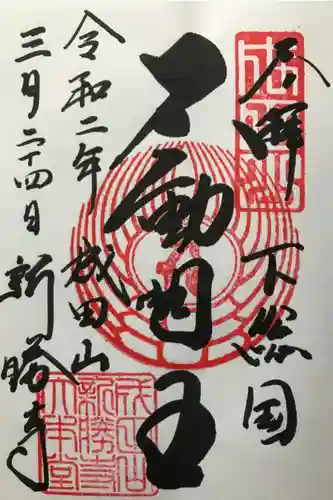 奉拝
下総国
不動明王
令和二年
成田山
三月二十四日
新勝寺
成田山
新勝寺
大本堂